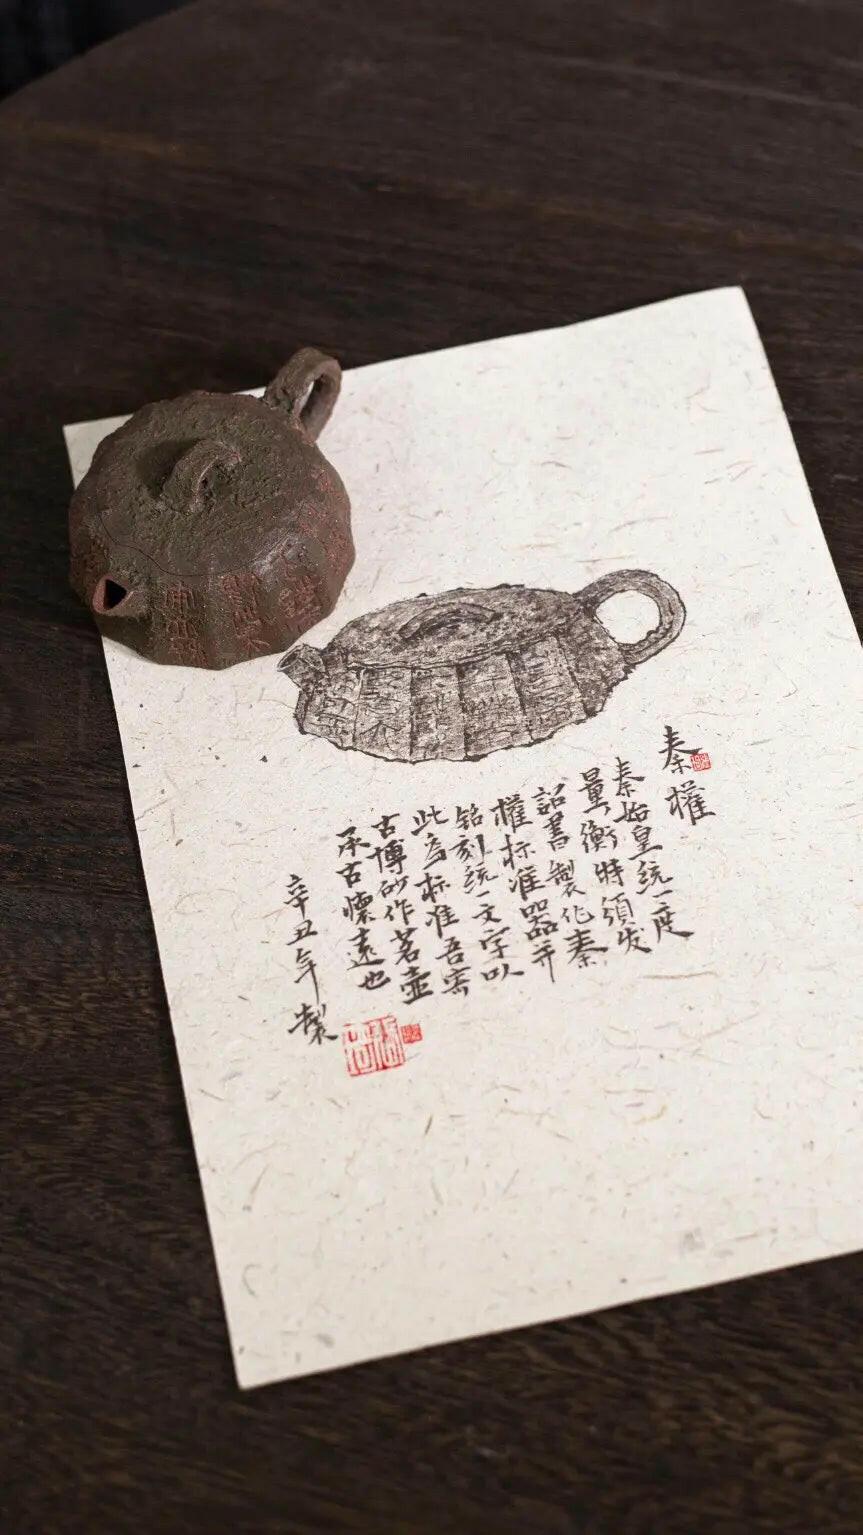 秦權
秦始皇統一度
量衡時須发
詔書製化秦
權标准器并
铭刻統一文字以
此為标准吾
古博砂作茗壶
承古懷遠也
辛丑年製